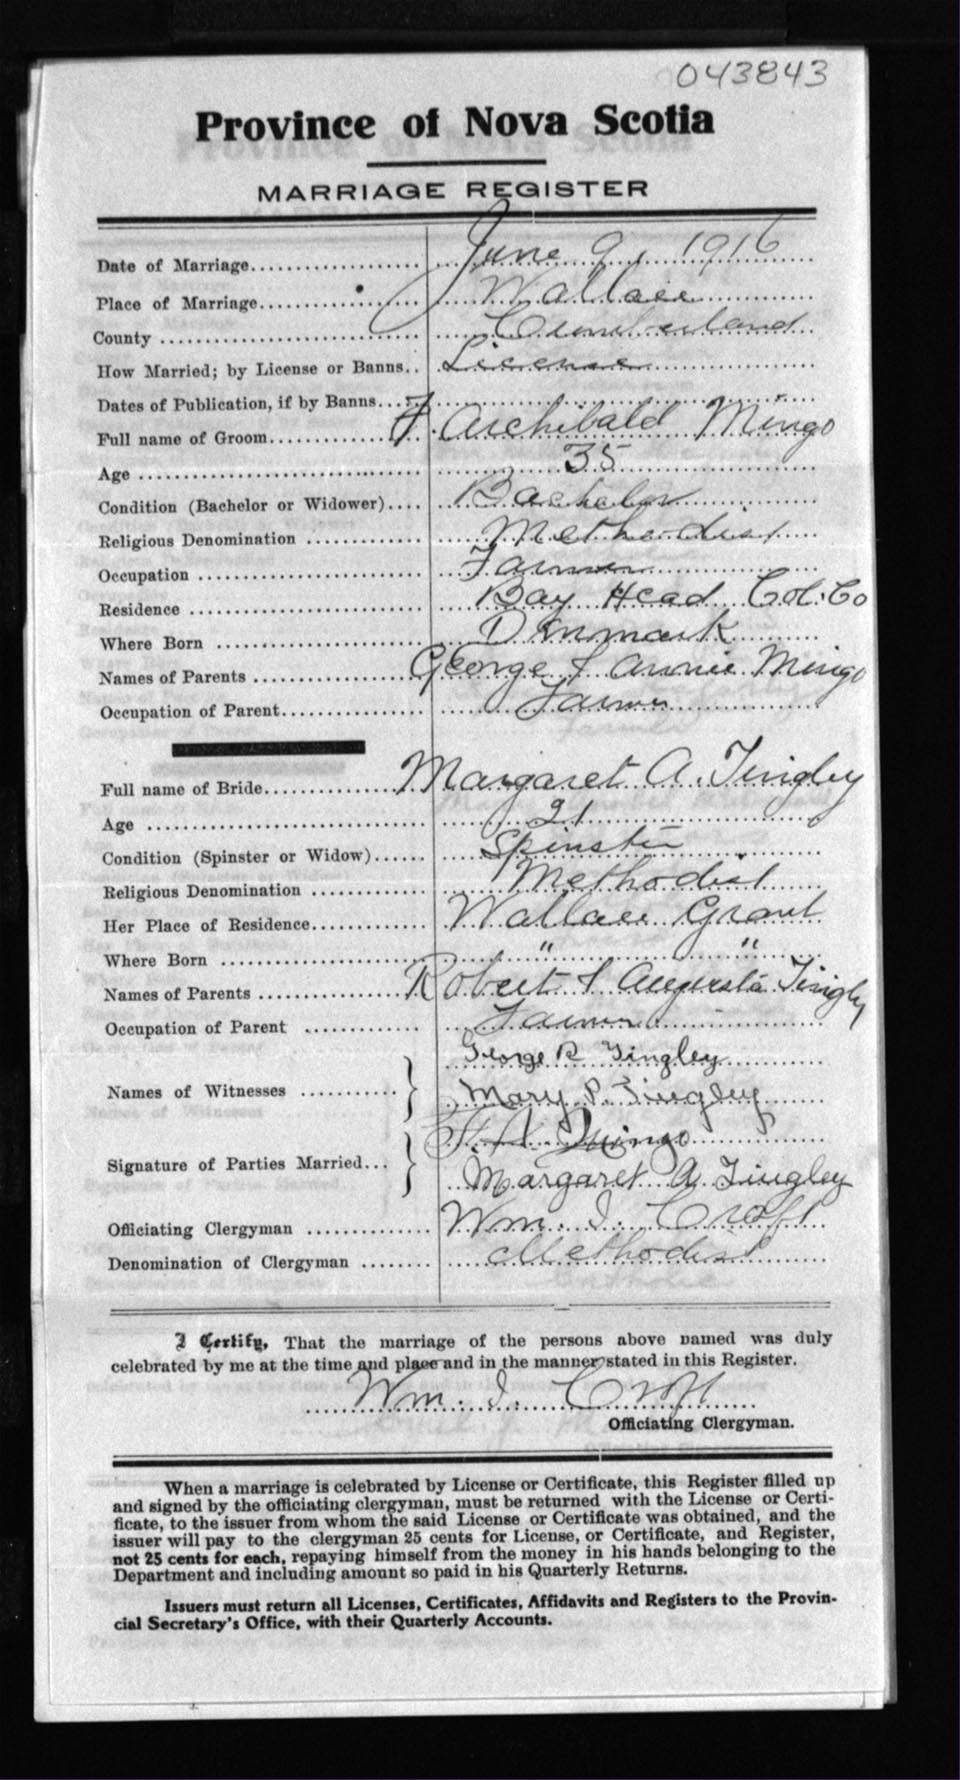 043843
Province of Nova Scotia
MARRIAGE REGISTER
Date of Marriage June 9, 1916
Place of Marriage Wallace
County Cumberland
How Married; by License or Banns License
Dates of Publication, if by Banns
Full name of Groom F. Archibald Mingo
Age 35
Condition (Bachelor or Widower) Bachelor
Religious Denomination Methodist
Occupation Farmer
Residence Bay Head Col. Co
Where Born Denmark
Names of Parents George & Annie Mingo
Occupation of Parent Farmer
Full name of Bride Margaret A. Tingley
Age 21
Condition (Spinster or Widow) Spinster
Religious Denomination Methodist
Her Place of Residence Wallace Grant
Where Born " "
Names of Parents Robert & Augusta Tingley
Occupation of Parent Farmer
Names of Witnesses George R Tingley
Mary P. Tingley
Signature of Parties Married F. A. Mingo
Margaret A Tingley
Officiating Clergyman Wm. I. Croft
Denomination of Clergyman Methodist
I Certify, That the marriage of the persons above named was duly
celebrated by me at the time and place and in the manner stated in this Register.
Wm. I. Croft
Officiating Clergyman.
When a marriage is celebrated by License or Certificate, this Register filled up
and signed by the officiating clergyman, must be returned with the License or Certi-
ficate, to the issuer from whom the said License or Certificate was obtained, and the
issuer will pay to the clergyman 25 cents for License, or Certificate, and Register,
not 25 cents for each, repaying himself from the money in his hands belonging to the
Department and including amount so paid in his Quarterly Returns.
Issuers must return all Licenses, Certificates, Affidavits and Registers to the Provin-
cial Secretary's Office, with their Quarterly Accounts.